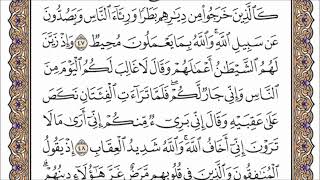 كَٱلَّذِينَ خَرَجُوا۟ مِن دِيَٰرِهِم بَطَرًا وَرِئَآءَ ٱلنَّاسِ وَيَصُدُّونَ
عَن سَبِيلِ ٱللَّهِ ۚ وَٱللَّهُ بِمَا يَعْمَلُونَ مُحِيطٌ ٤٧ وَإِذْ زَيَّنَ
لَهُمُ ٱلشَّيْطَٰنُ أَعْمَٰلَهُمْ وَقَالَ لَا غَالِبَ لَكُمُ ٱلْيَوْمَ مِنَ
ٱلنَّاسِ وَإِنِّى جَارٌ لَّكُمْ ۖ فَلَمَّا تَرَآءَتِ ٱلْفِئَتَانِ نَكَصَ
عَلَىٰ عَقِبَيْهِ وَقَالَ إِنِّى بَرِىٓءٌ مِّنكُمْ إِنِّىٓ أَرَىٰ مَا لَا
تَرَوْنَ إِنِّىٓ أَخَافُ ٱللَّهَ ۚ وَٱللَّهُ شَدِيدُ ٱلْعِقَابِ ٤٨ إِذْ يَقُولُ
ٱلْمُنَٰفِقُونَ وَٱلَّذِينَ فِى قُلُوبِهِم مَّرَضٌ غَرَّ هَٰٓؤُلَآءِ دِينُهُمْ ۗ